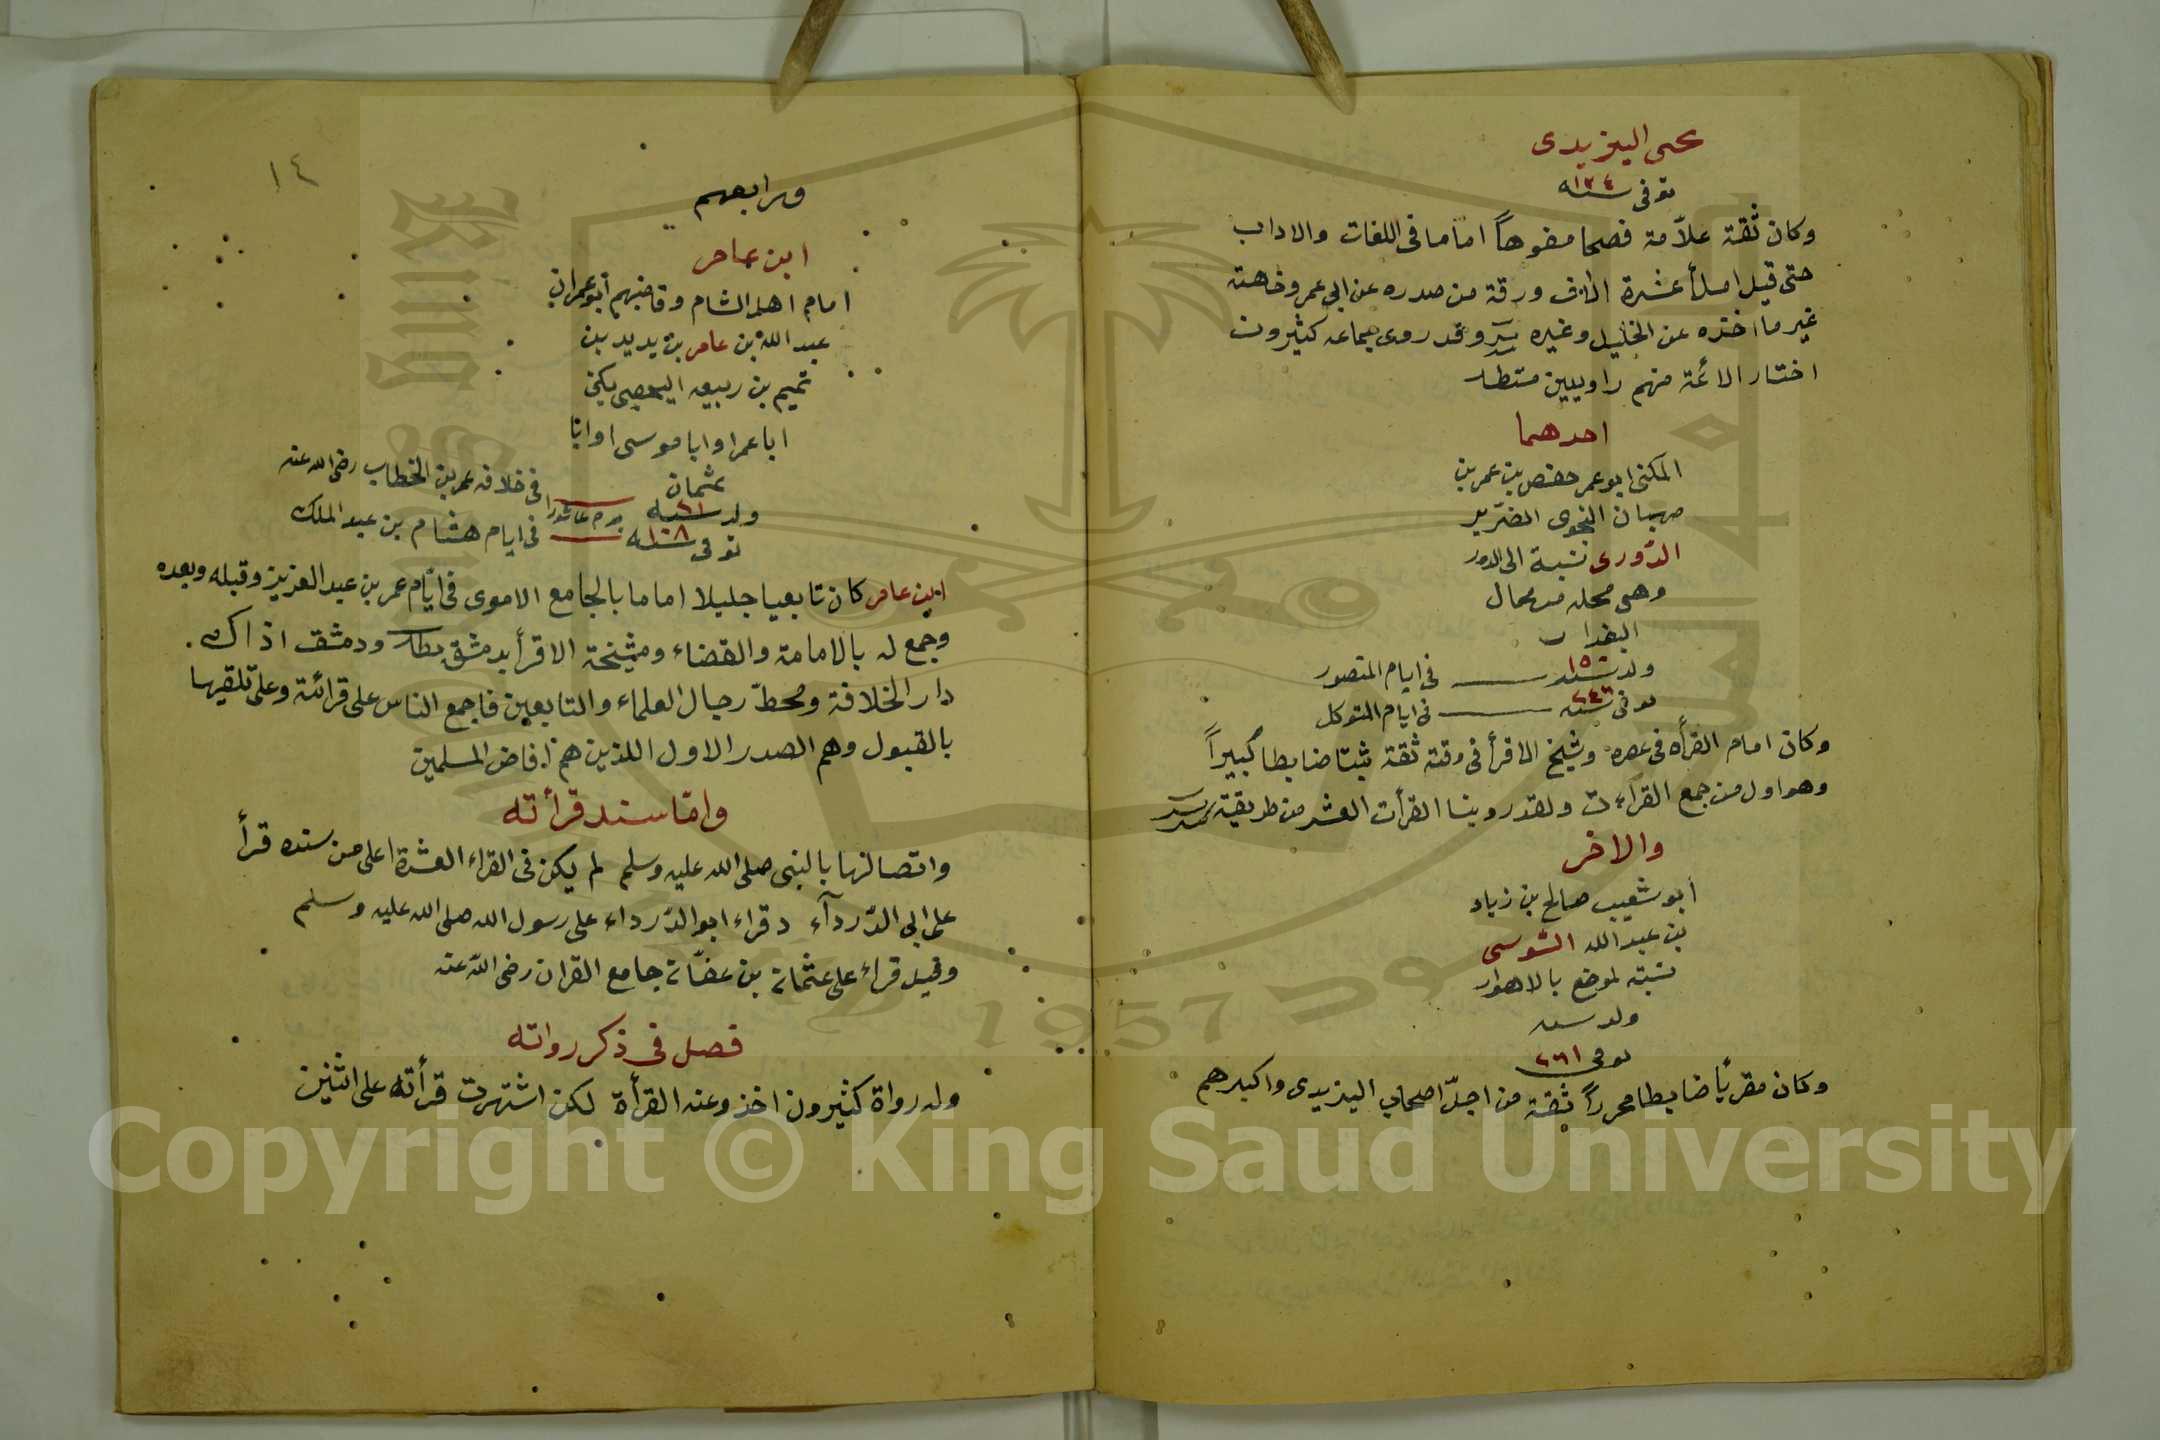 يحيى اليزيدى
توفى سنه ١٣٤
وكان ثقة علاّمة فصيحا مفوهاً اماما فى اللغات والاداب
حتى قيل املأ عشرة الاف ورقة من صدره عن ابى عمرو خاصة
غير ما اخذه عن الخليل وغيره وقد روى جماعه كثيرون
اختار الائمة منهم راويين
احدهما
المكنى ابو عمر حفص بن عمر بن
صهبان النحوى الضرير
الدّورى نسبة الى الدور
وهى محله من محال
البغداد
ولد سنه ١٥٠ فى ايام المنصور
توفى سنه ٢٤٦ فى ايام المتوكل
وكان امام القرأة فى عصره وشيخ الاقرأ فى وقته ثقة ثبتا ضابطا كبيراً
وهو اول من جمع القرآءت ولقد روينا القرأت العشر من طريقية
والاخر
أبو شعيب صالح بن زياد
بن عبد الله السّوسى
نسبته لموضع بالاهواز
ولد سنه
توفى ٢٦١
وكان مقريأ ضابطا محرراً ثقة من اجلّ اصحاب اليزيدى واكبرهم
١٤
ورابعهم
ابن عامر
امام اهل الشام وقاضيهم أبو عمران
عبد الله بن عامر بن يديد بن
تميم بن ربيعه اليحصبى يكنى
ابا عمرا وابا موسى او ابا
عثمان
ولد سنه ٢١ فى خلافه عمر بن الخطاب رضى الله عنه
توفى سنه ١٠٨ يوم عاشورا فى ايام هشام بن عبد الملك
ابن عامر كان تابعيا جليلا اماما بالجامع الاموى فى ايّام عمر بن عبد العزيز وقبله وبعده
وجمع له بالامامة والقضاء ومشيخة الاقرأ بدمشق ودمشق اذاك
دار الخلافة ومحطّ رجال العلماء والتابعين فاجمع الناس على قرائة وعلى تلقيها
بالقبول وهم الصدر الاول اللذين هم افاضل المسلمين
وامّا سند قرأته
واتصالها بالنبى صلى الله عليه وسلم لم يكن فى القراء العشرة اعلى من سنده قرأ
على ابى الدّردآء وقراء ابو الدّرداء على رسول الله صلى الله عليه وسلم
وقيل قراء على عثمان بن عفّان جامع القران رضى الله عنه
فصل فى ذكر رواته
وله رواة كثيرون اخذو عنه القرأة لكن اشتهرت قرأته على اثنين
Copyright © King Saud University
1957